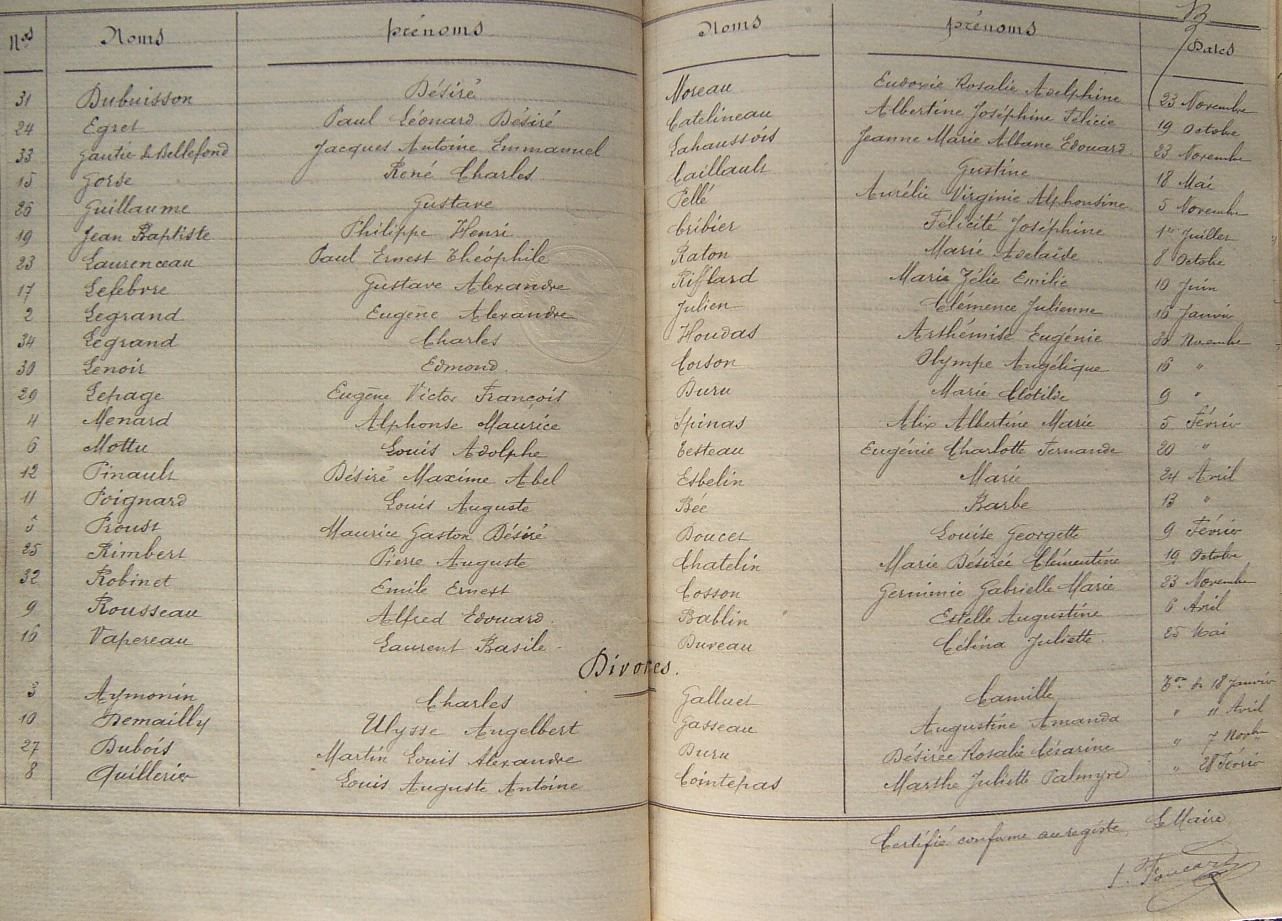 Nos Noms prénoms Noms prénoms Dates
31 Dubuisson Désiré Moreau Eudoxie Rosalie Adelphine 23 Novembre
24 Egret Paul Léonard Désiré Catelineau Albertine Joséphine Félicie 19 Octobre
33 Gautié de Bellefond Jacques Antoine Emmanuel Lahaussois Jeanne Marie Albane Edouard 23 Novembre
15 Gorse René Charles Caillault Gustine 18 Mai
26 Guillaume Gustave Pellé Aurélie Virginie Alphonsine 5 Novembre
19 Jean Baptiste Philippe Henri Cribier Félicité Joséphine 1er Juillet
23 Laurenceau Paul Ernest Théophile Raton Marie Adelaïde 8 Octobre
17 Lefebvre Gustave Alexandre Rifflard Marie Emilie 10 Juin
2 Legrand Eugène Alexandre Julien Clémence Julienne 16 Janvier
34 Legrand Charles Houdas Arthémise Eugénie Novembre
30 Lenoir Edmond Corson Olympe Angélique 16 "
29 Lepage Eugène Victor François Buru Marie Clotilde 9 "
4 Menard Alphonse Maurice Spinas Alix Albertine Marie 5 Février
6 Mottu Louis Adolphe Testeau Eugénie Charlotte Fernande 20 "
12 Pinault Désiré Maxime Abel Esbelin Marie 24 Avril
11 Poignard Louis Auguste Bée Barbe 13 "
5 Proust Maurice Gaston Désiré Doucet Louise Georgette 9 Février
25 Rimbert Pierre Auguste Chatelin Marie Désirée Clémentine 19 Octobre
32 Robinet Emile Ernest Cosson Germinie Gabrielle Marie 23 Novembre
9 Rousseau Alfred Edouard Bablin Estelle Augustine 6 Avril
16 Vapereau Laurent Basile Bureau Célina Juliette 25 Mai
Divorces.
3 Aymonin Charles Galluet Camille du 18 Janvier
10 Demailly Ulysse Augelbert Gasseau Augustine Amanda " 11 Avril
27 Dubois Martin Louis Alexandre Buru Désirée Rosalie Césarine " 7 Novbre
8 Quillerier Louis Auguste Antoine Cointepas Marthe Juliette Palmyre " 28 Février
Certifié conforme au registre Le Maire